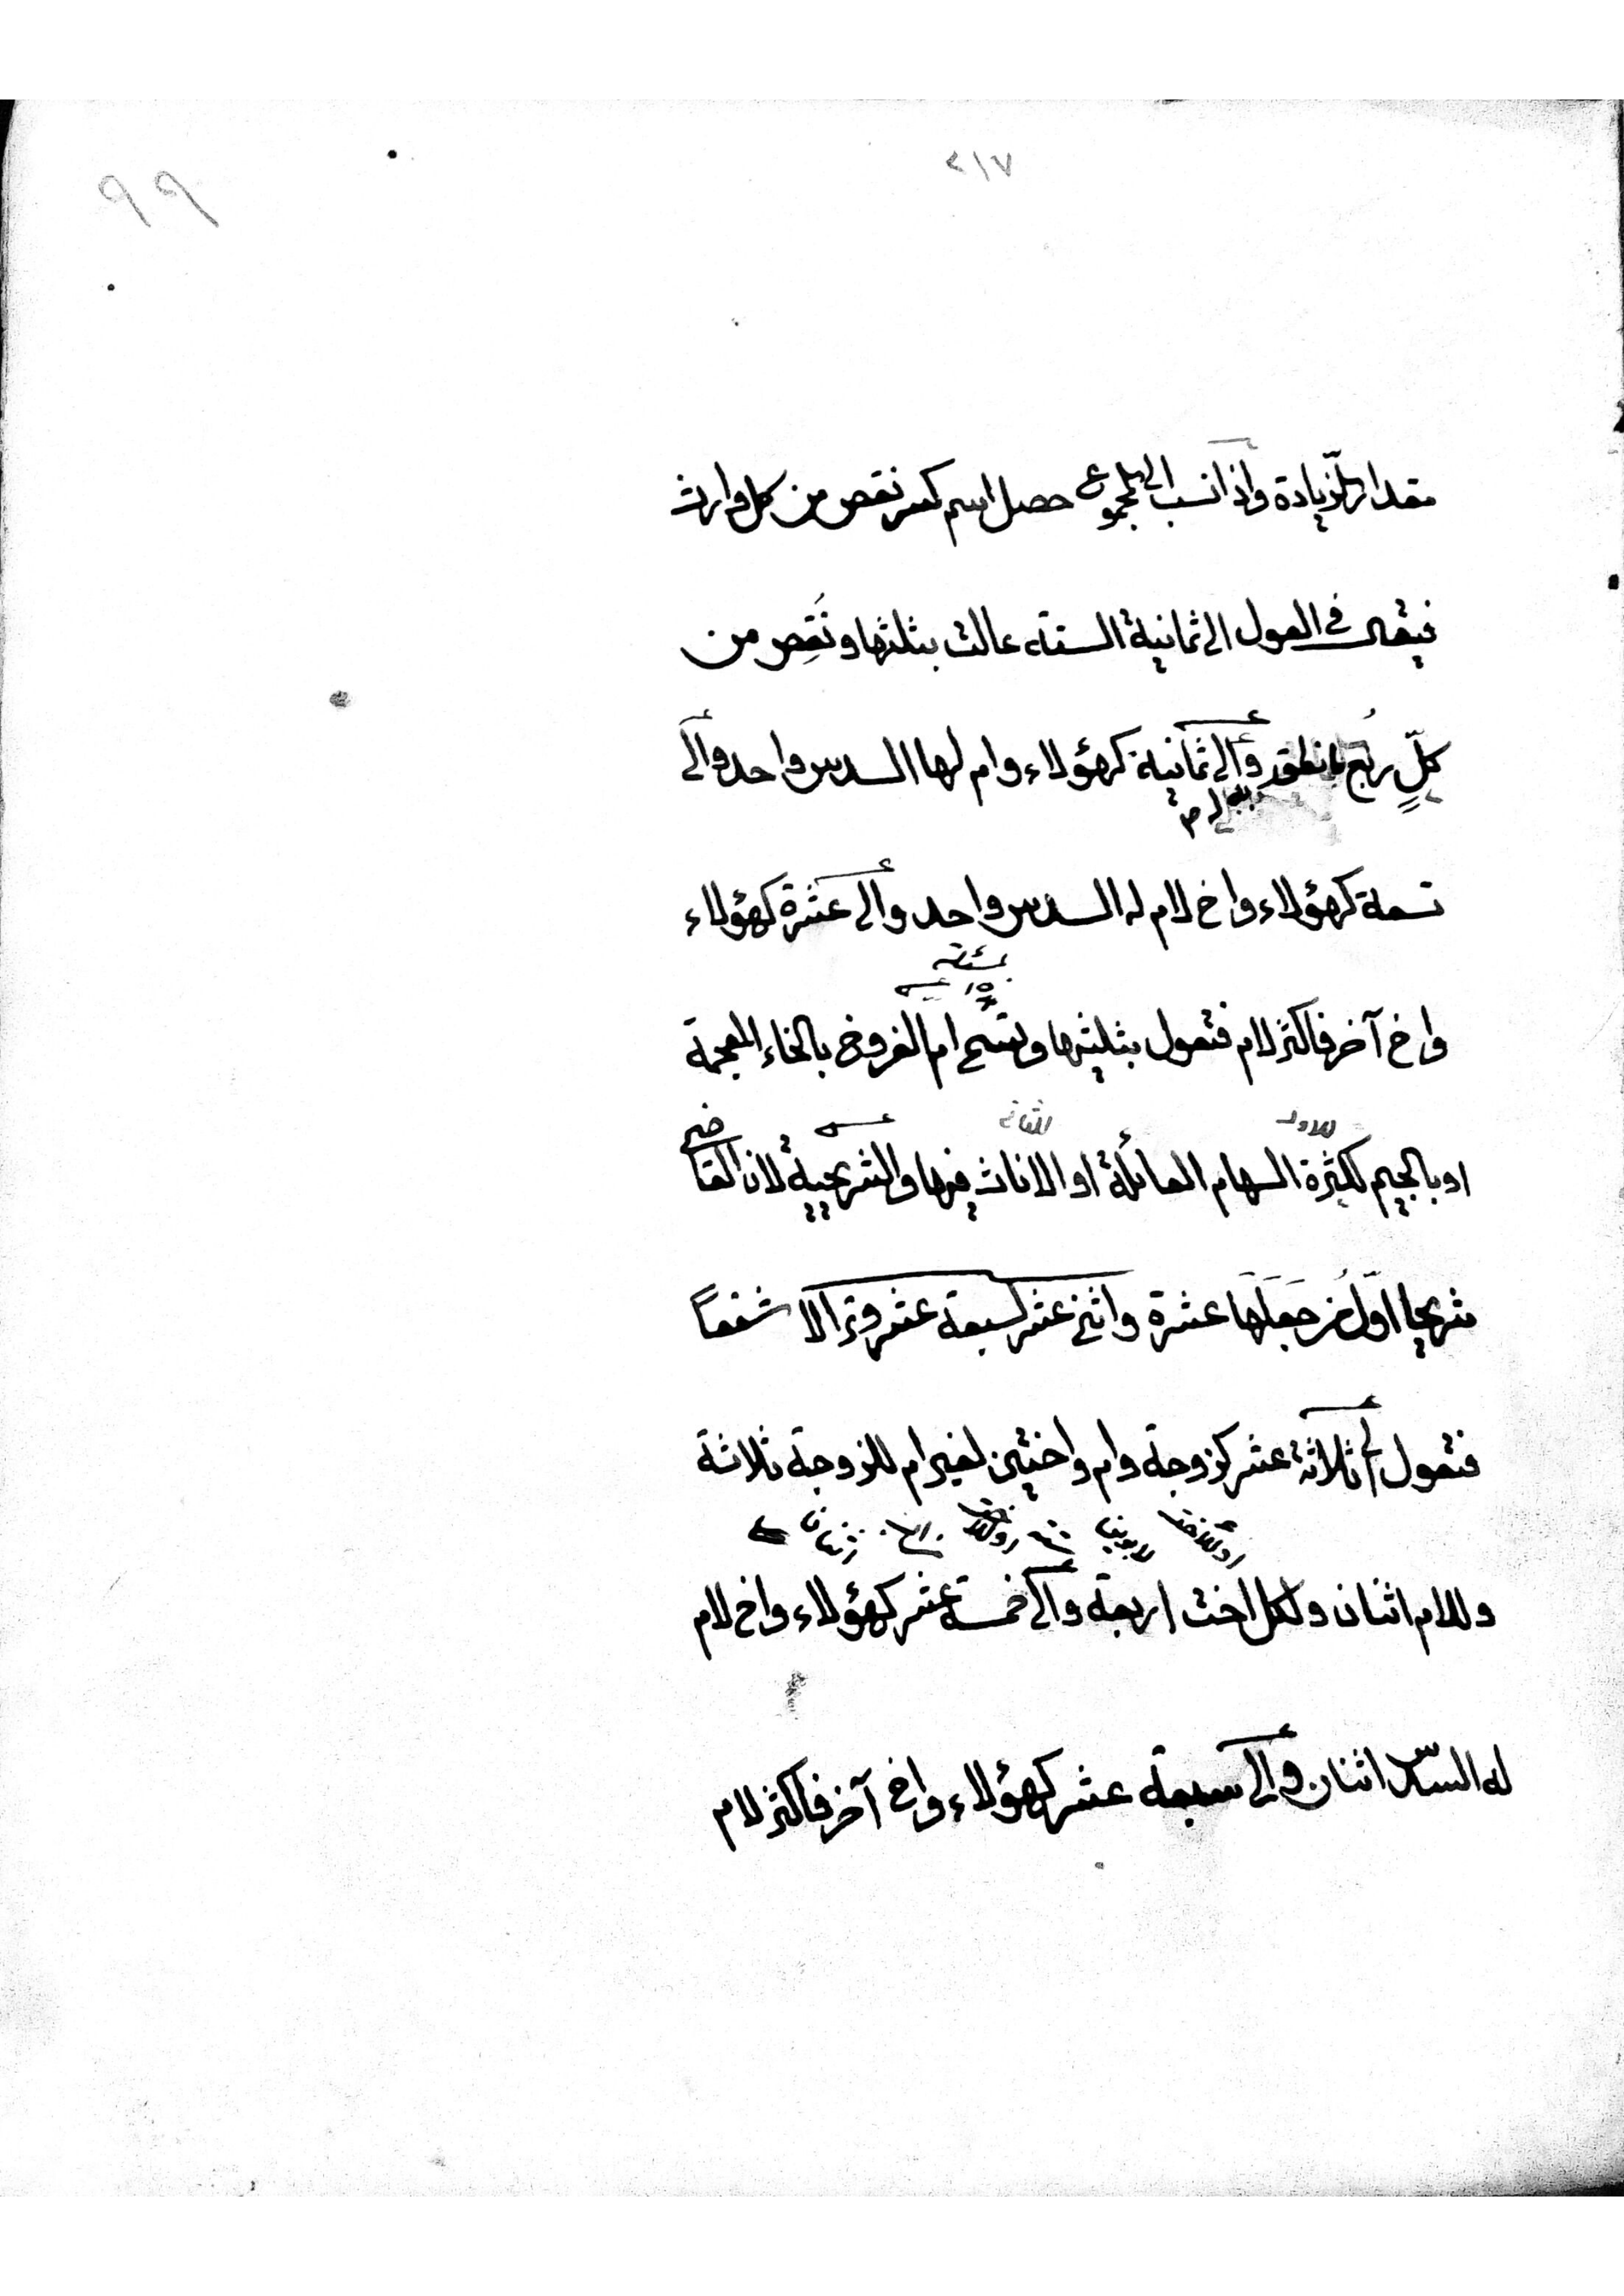 ٢١٧
٩٩
مقدار الزّيادة واذا نسب الى المجموع حصل اسم كسر نقص من كل وارث
فيقال في العول الى ثمانية الستة عالت بثلثها ونُقِص من
كلٍّ رُبع والى ثمانية كهؤلاء وام لها السدس واحد والى
تسعة كهؤلاء واخ لام له السدس واحد والى عشرة كهؤلاء
واخ آخر فاكثر لام فتعول بثلثيها وتسمى ام الفروخ بالخاء المعجمة
او بالجيم لكثرة السهام العائلة او الاناث فيها والشريحية لان القاضي
شريحا اوّلُ من جَعَلَها عشرة واثني عشر لسبعة عشر وترا لا شفعاً
فتعول الى ثلاثة عشر كزوجة وام واختين لغير ام للزوجة ثلاثة
وللام اثنان ولكل اخت اربعة والى خمسة عشر كهؤلاء واخ لام
له السّدس اثنان والى سبعة عشر كهؤلاء واخ آخر فاكثر لام